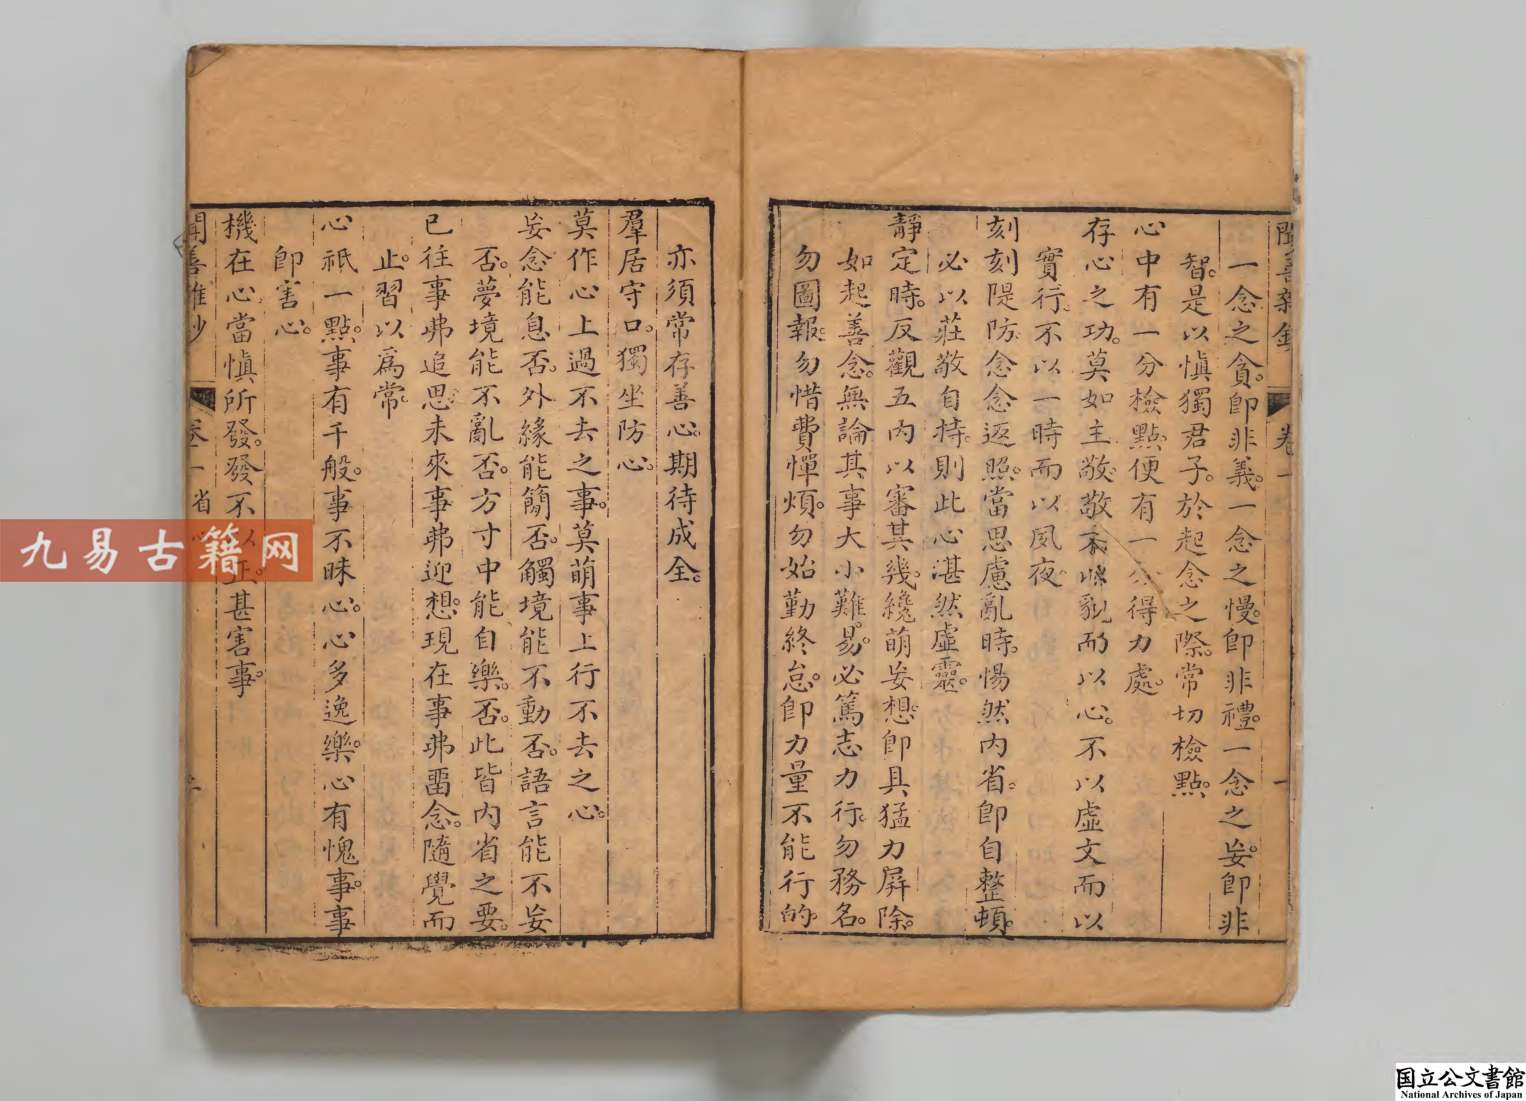 一念之貪。即非義。一念之慢。即非禮。一念之妄。即非
智。是以愼獨君子。於起念之際。常切檢點。
心中有一分檢點。便有一分得力處。
存心之功。莫如主敬。敬不以貌而以心。不以虛文而以
實行。不以一時而以夙夜
刻刻隄防。念念返照。當思慮亂時。惕然內省。即自整頓。
必以莊敬自持。則此心湛然虛靈。
靜定時。反觀五內。以審其幾。纔萌妄想。即具猛力屏除。
如起善念。無論其事大小難易。必篤志力行。勿務名。
勿圖報。勿惜費憚煩。勿始勤終怠。即力量不能行的。
亦須常存善心。期待成全。
羣居守口。獨坐防心。
莫作心上過不去之事。莫萌事上行不去之心。
妄念能息否。外緣能簡否。觸境能不動否。語言能不妄
否。夢境能不亂否。方寸中能自樂否。此皆內省之要。
已往事弗追思。未來事弗迎想。現在事弗畱念。隨覺而
止。習以爲常。
心祇一點。事有千般。事不昧心。心多逸樂。心有愧事。事
即害心。
機在心。當愼所發。發不以正。甚害事。
卷一 省
九易古籍网
国立公文書館
National Archives of Japan